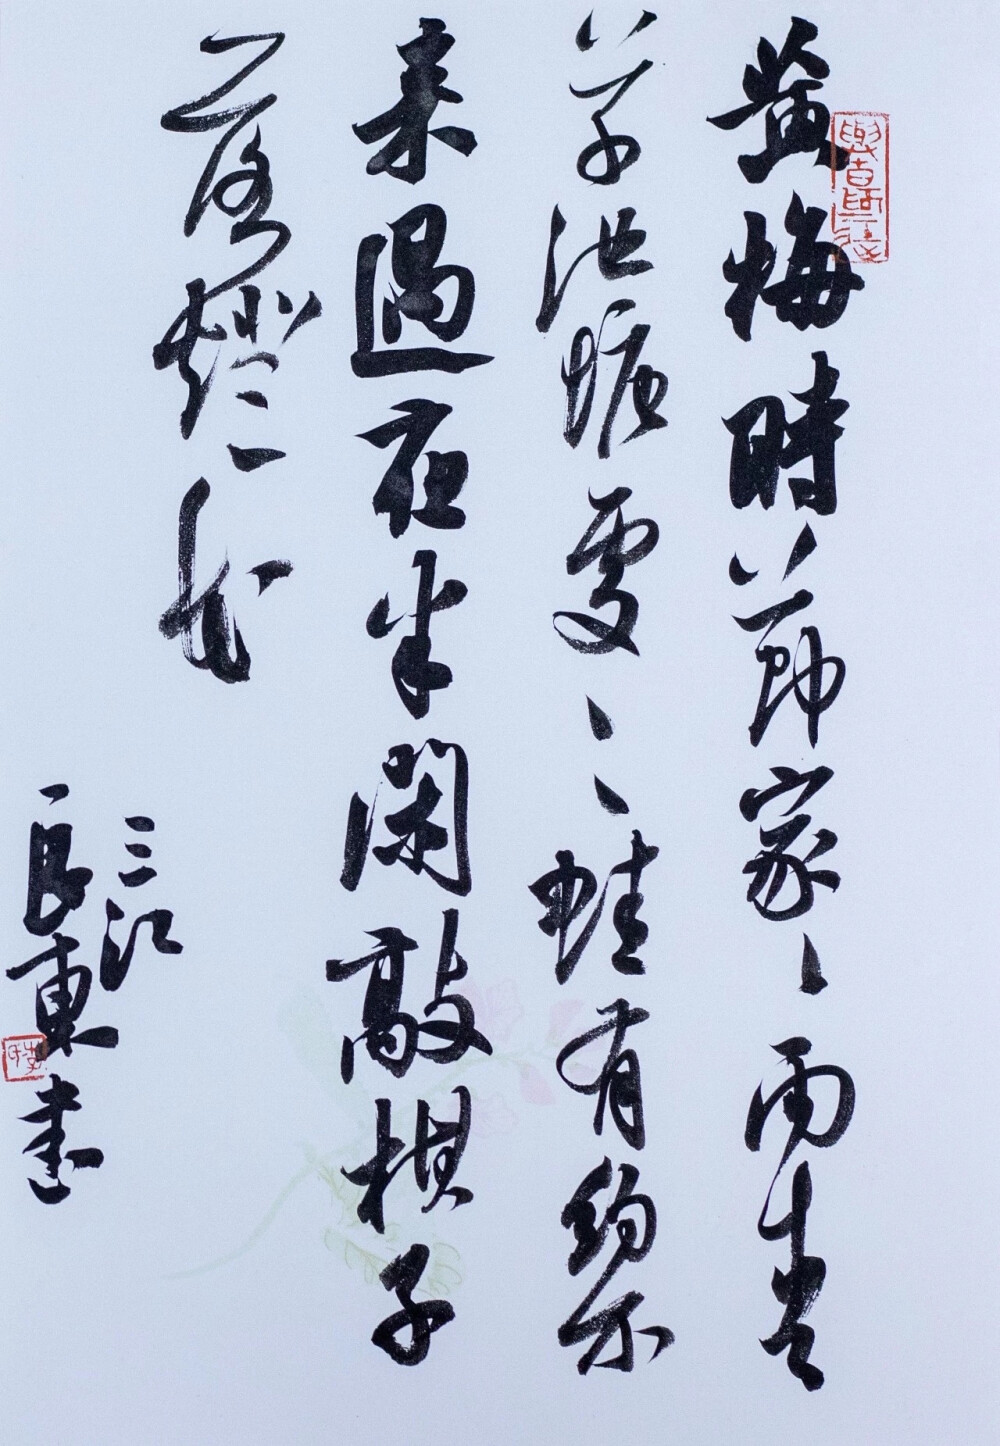 黄梅時節家〻雨青
草池塘處〻蛙有約不
来過夜半閑敲棋子
落燈花
三江
長東書